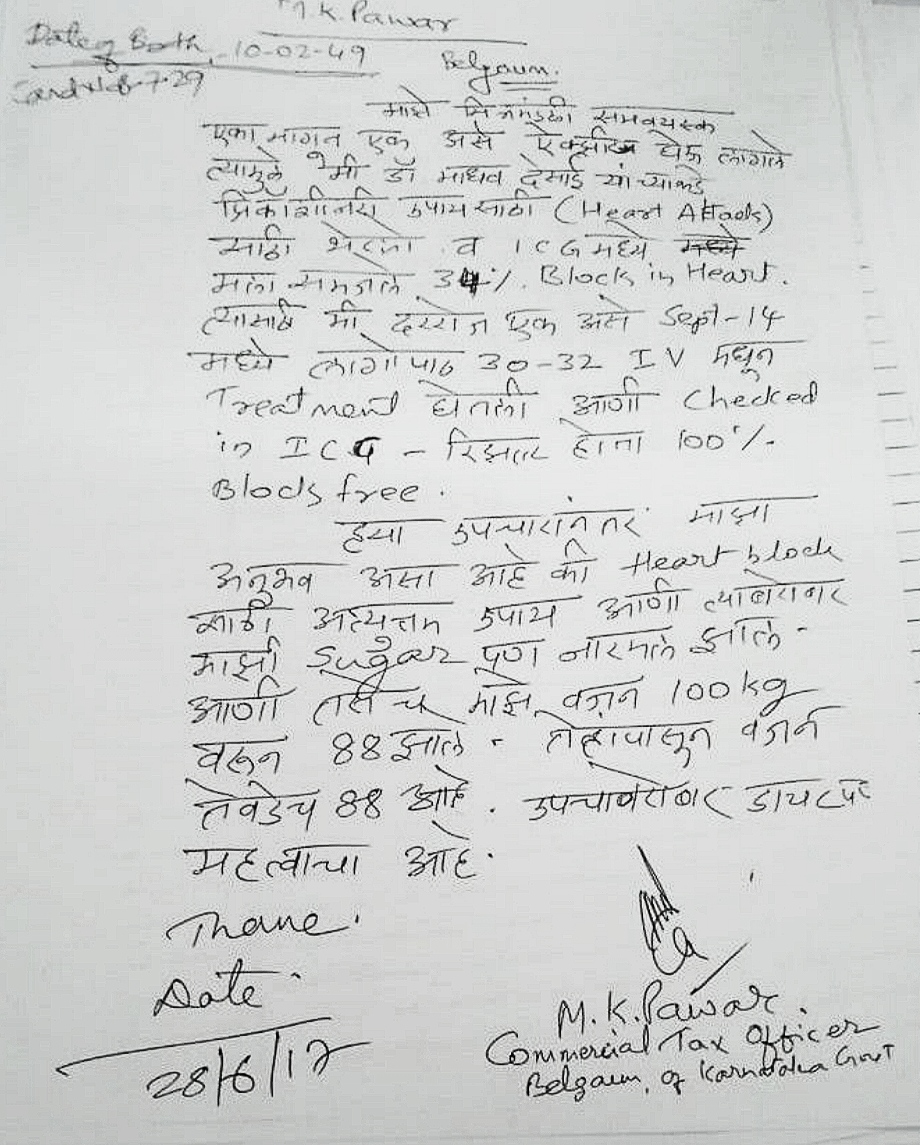 M.K. Pawar
Date of Birth 10-02-49
Belgaum.
माझे मित्रमंडळी समवयस्क
एका मागून एक असे येऊ लागले
त्यामुळे मी डॉ माधव देसाई यांच्याकडे
उपाय साठी (Heart Attack)
साठी भेटलो व ICG मध्ये
मला समजले 34%. Block in Heart.
त्यासाठी मी दररोज एक असे Sept-14
मध्ये लागोपाठ 30-32 IV मधून
Treatment घेतली आणी Checked
in ICG - रिझल्ट होता 100%.
Blocks free.
ह्या उपचारांनंतर माझा
अनुभव असा आहे की Heart block
साठी अत्यत्तम उपाय आणी त्याबरोबर
माझी Sugar पूर्ण नारमल झाले.
आणी तसेच माझे वजन 100 kg
वरून 88 झाले. तेव्हापासून वजन
तेवढेच 88 आहे. उपचाबरोबर डायट पण
महत्वाचा आहे.
Thane.
Date
28/6/17
M.K. Pawar.
Commercial Tax Officer
Belgaum, of Karnataka Govt